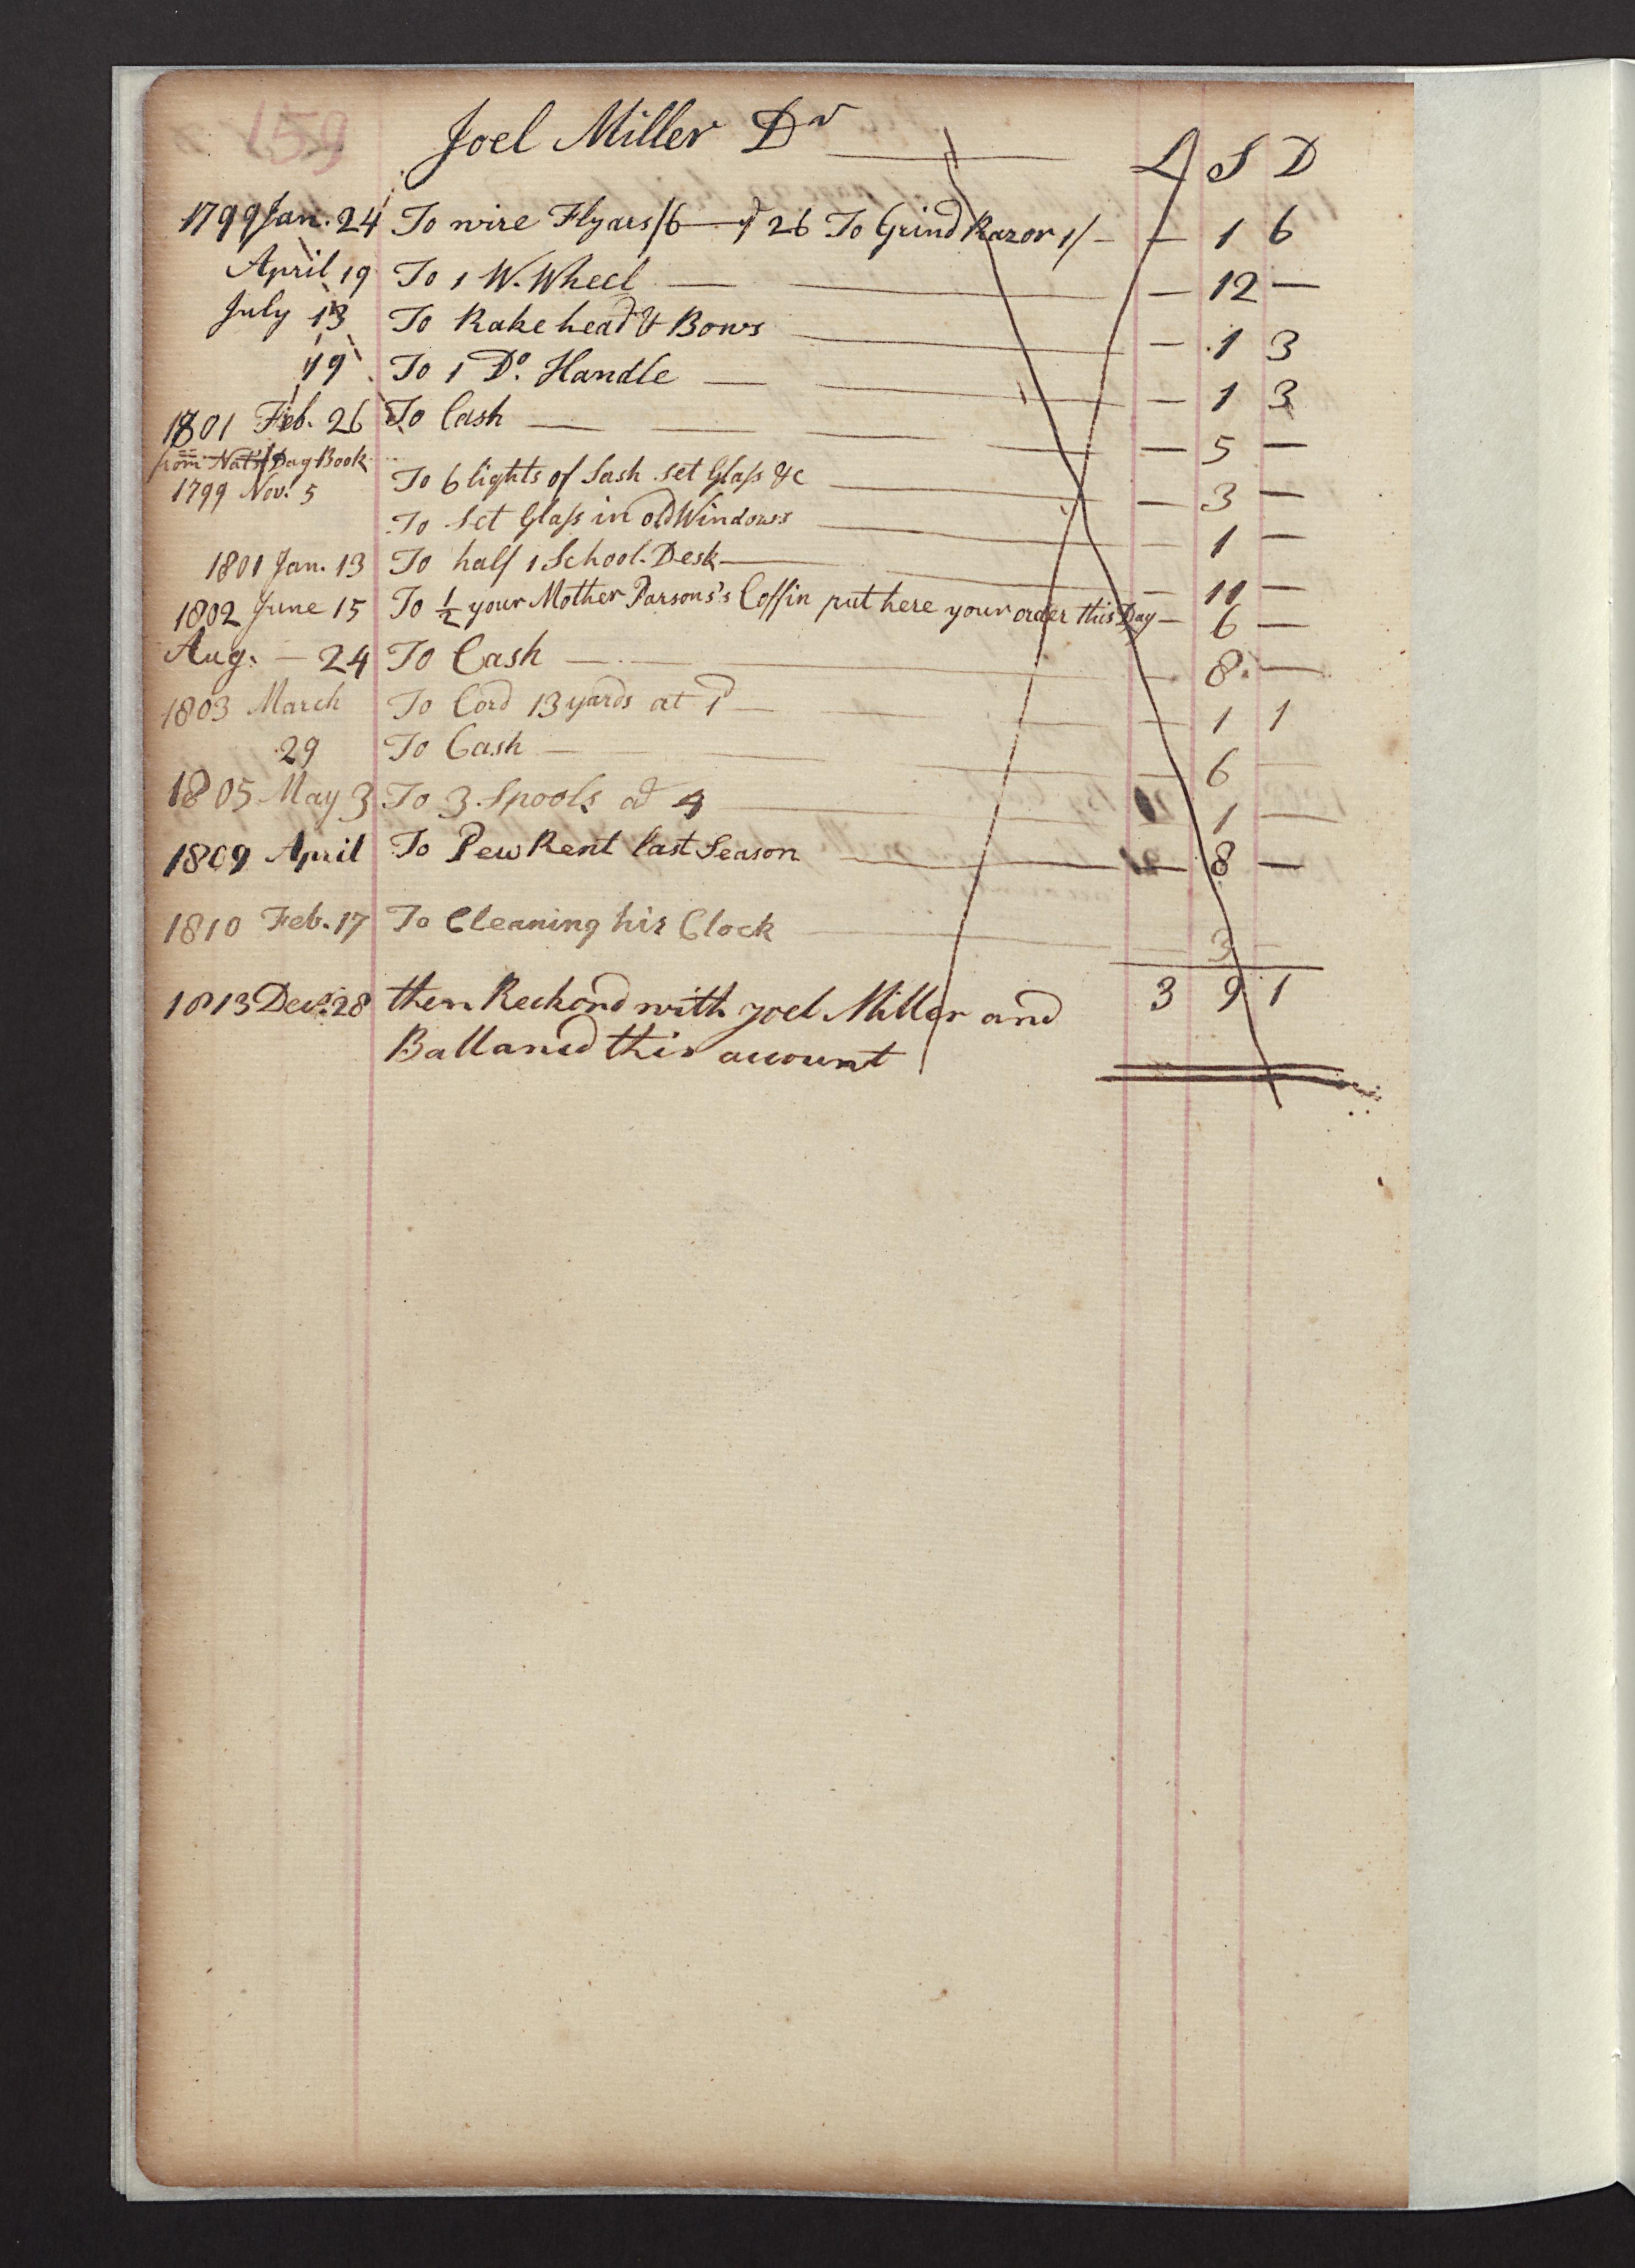 159
Joel Miller Dr
L S D
1799 Jan. 24 To wire Flyars /6 — 26 To Grind Razor 1/ — — 1 6
April 19 To 1 W. Wheel — — 12 —
July 13 To Rake head & Bows — — 1 3
19 To 1 Do. Handle — — 1 3
1801 Feb. 26 To Cash — — 5 —
from Nat's Day Book
1799 Nov. 5 To 6 lights of Sash set Glass &c — — 3 —
To Set Glass in old Windows — — 1 —
1801 Jan. 13 To half 1 School. Desk — — 11 —
1802 June 15 To ½ your Mother Parsons's Coffin put here your order this Day — 6 —
Aug. — 24 To Cash — — 8 —
1803 March To Cord 13 yards at 1d — — 1 1
29 To Cash — — 6 —
1805 May 3 To 3 Spools at 4 — 1 —
1809 April To Pew Rent last Season — — 8 —
1810 Feb. 17 To Cleaning his Clock — — 3 —
1813 Dec. 28 then Reckond with Joel Miller and 3 9 1
Ballancd this account